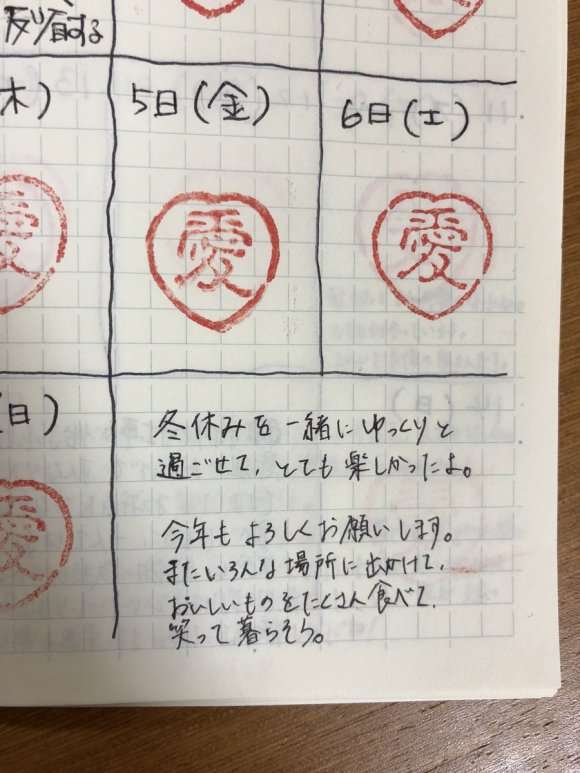 反り直する
木)
5日(金)
6日(土)
愛
愛
愛
日)
愛
冬休みを一緒にゆっくりと
過ごせて、とても楽しかったよ。
今年もよろしくお願いします。
またいろんな場所に出かけて、
おいしいものをたくさん食べて、
笑って暮らそう。